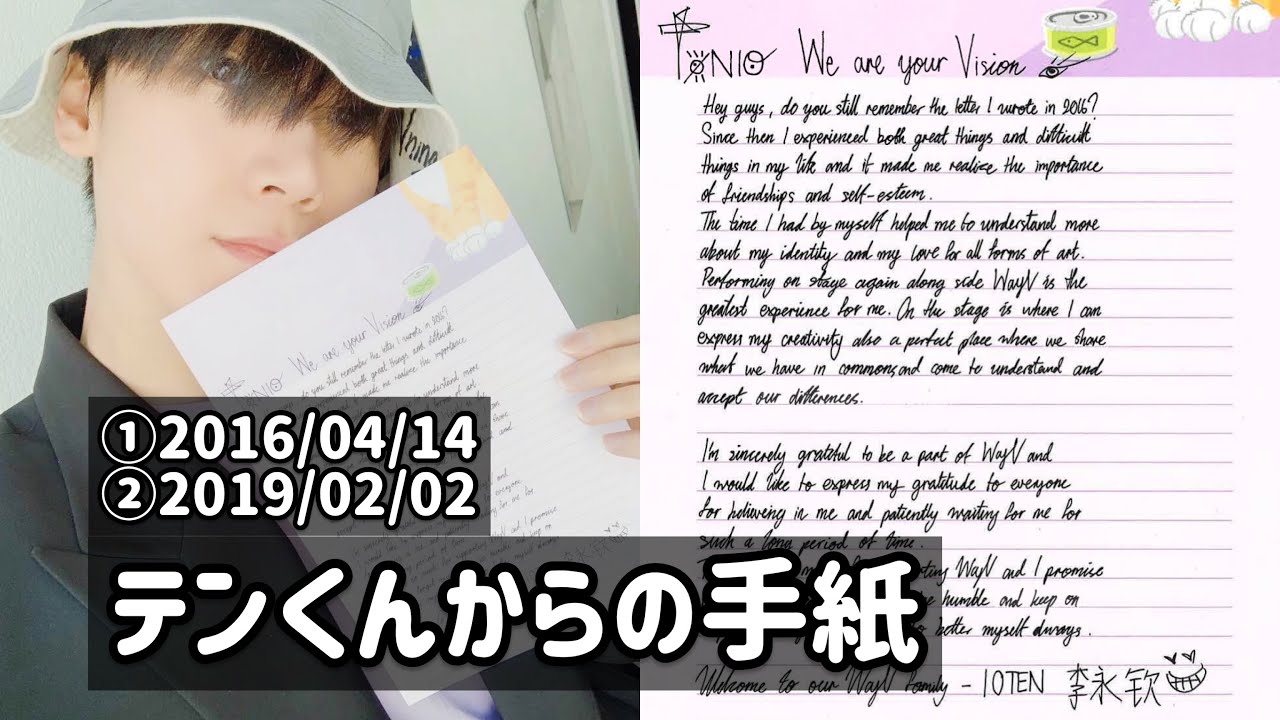 ①2016/04/14
②2019/02/02
テンくんからの手紙
We are your Vision
Hey guys, do you still remember the letter I wrote in 2016?
Since then I experienced both great things and difficult
things in my life and it made me realize the importance
of friendships and self-esteem.
The time I had by myself helped me to understand more
about my identity and my love for all forms of art.
Performing on stage again along side WayV is the
greatest experience for me. On the stage is where I can
express my creativity also a perfect place where we share
what we have in common and come to understand and
accept our differences.
I'm sincerely grateful to be a part of WayV and
I would like to express my gratitude to everyone
for believing in me and patiently waiting for me for
such a long period of time.
WayV and I promise
humble and keep on
better myself always.
Welcome to our WayV family - 10TEN 李永钦
We are your Vision
do you still remember the letter I wrote in 2016?